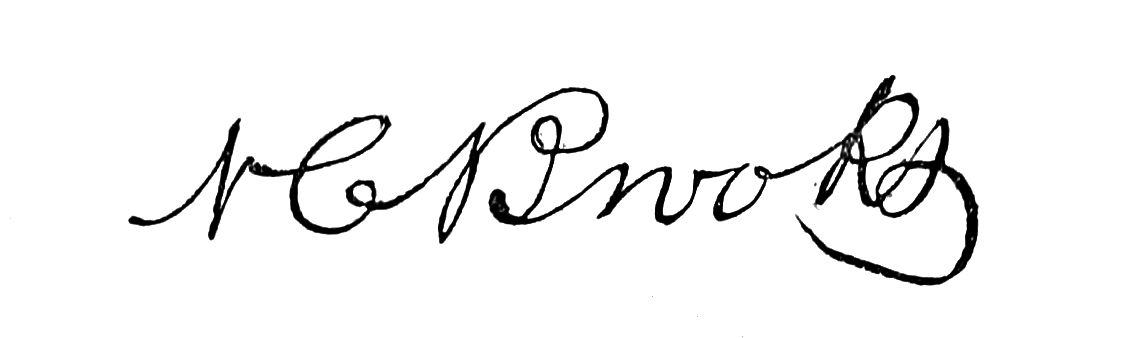 N C Brooks